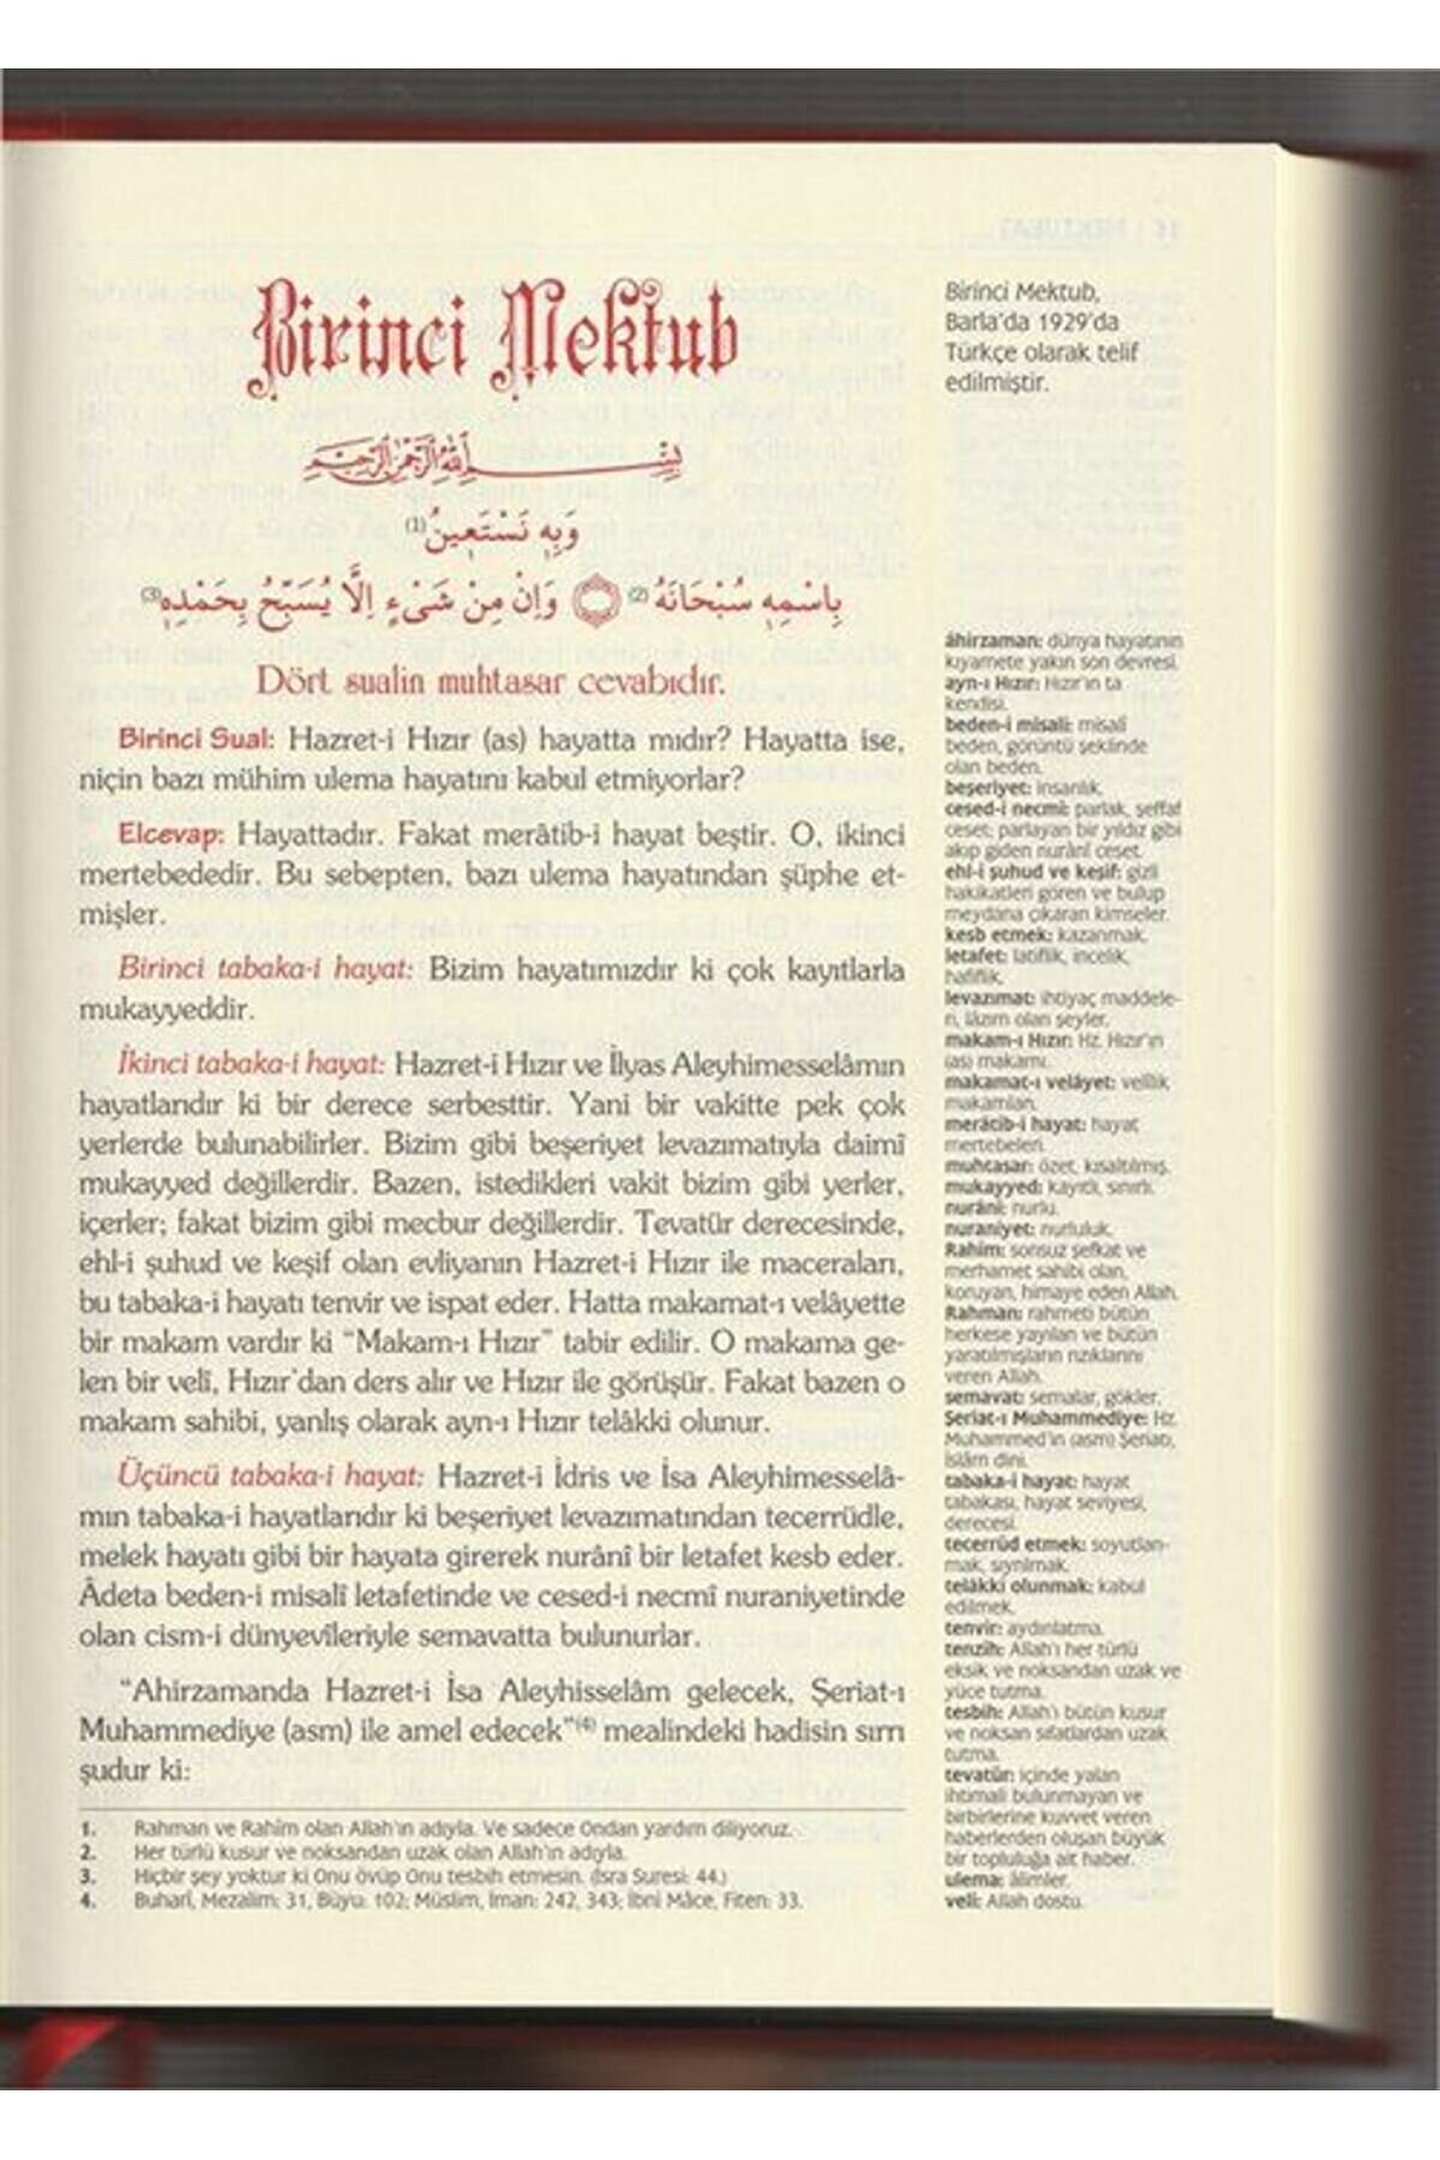 Birinci Mektub
بِسْمِ اللّٰهِ الرَّحْمٰنِ الرَّحِيمِ
وَبِهِ نَسْتَعِينُ(1)
بِاسْمِهِ سُبْحَانَهُ(2) وَاِنْ مِنْ شَىْءٍ اِلَّا يُسَبِّحُ بِحَمْدِهِ(3)
Dört sualin muhtasar cevabıdır.
Birinci Sual: Hazret-i Hızır (as) hayatta mıdır? Hayatta ise,
niçin bazı mühim ulema hayatını kabul etmiyorlar?
Elcevap: Hayattadır. Fakat merâtib-i hayat beştir. O, ikinci
mertebededir. Bu sebepten, bazı ulema hayatından şüphe et-
mişler.
Birinci tabaka-i hayat: Bizim hayatımızdır ki çok kayıtlarla
mukayyeddir.
İkinci tabaka-i hayat: Hazret-i Hızır ve İlyas Aleyhimesselâmın
hayatlarıdır ki bir derece serbesttir. Yani bir vakitte pek çok
yerlerde bulunabilirler. Bizim gibi beşeriyet levazımatıyla daimî
mukayyed değillerdir. Bazen, istedikleri vakit bizim gibi yerler,
içerler; fakat bizim gibi mecbur değillerdir. Tevatür derecesinde,
ehl-i şuhud ve keşif olan evliyanın Hazret-i Hızır ile maceraları,
bu tabaka-i hayatı tenvir ve ispat eder. Hatta makamat-ı velâyette
bir makam vardır ki "Makam-ı Hızır" tabir edilir. O makama ge-
len bir velî, Hızır'dan ders alır ve Hızır ile görüşür. Fakat bazen o
makam sahibi, yanlış olarak ayn-ı Hızır telâkki olunur.
Üçüncü tabaka-i hayat: Hazret-i İdris ve İsa Aleyhimesselâ-
mın tabaka-i hayatlarıdır ki beşeriyet levazımatından tecerrüdle,
melek hayatı gibi bir hayata girerek nurânî bir letafet kesb eder.
Âdeta beden-i misalî letafetinde ve cesed-i necmî nuraniyetinde
olan cism-i dünyevîleriyle semavatta bulunurlar.
"Ahirzamanda Hazret-i İsa Aleyhisselâm gelecek, Şeriat-ı
Muhammediye (asm) ile amel edecek"(4) mealindeki hadisin sırrı
şudur ki:
1. Rahman ve Rahîm olan Allah'ın adıyla. Ve sadece Ondan yardım diliyoruz.
2. Her türlü kusur ve noksandan uzak olan Allah'ın adıyla.
3. Hiçbir şey yoktur ki Onu övüp Onu tesbih etmesin. (İsra Suresi: 44.)
4. Buharî, Mezalim: 31, Büyu: 102; Müslim, İman: 242, 343; İbni Mâce, Fiten: 33.
Birinci Mektub,
Barla'da 1929'da
Türkçe olarak telif
edilmiştir.
âhirzaman: dünya hayatının
kıyamete yakın son devresi.
ayn-ı Hızır: Hızır'ın ta
kendisi.
beden-i misalî: misalî
beden, görüntü şeklinde
olan beden.
beşeriyet: insanlık.
cesed-i necmî: parlak, şeffaf
ceset; parlayan bir yıldız gibi
akıp giden nurânî ceset.
ehl-i şuhud ve keşif: gizli
hakikatleri gören ve bulup
meydana çıkaran kimseler.
kesb etmek: kazanmak.
letafet: latiflik, incelik,
hafiflik.
levazımat: ihtiyaç maddele-
ri, lâzım olan şeyler.
makam-ı Hızır: Hz. Hızır'ın
(as) makamı.
makamat-ı velâyet: velîlik
makamları.
merâtib-i hayat: hayat
mertebeleri.
muhtasar: özet, kısaltılmış.
mukayyed: kayıtlı, sınırlı.
nurânî: nurlu.
nuraniyet: nurluluk.
Rahîm: sonsuz şefkat ve
merhamet sahibi olan,
koruyan, himaye eden Allah.
Rahman: rahmeti bütün
herkese yayılan ve bütün
yaratılmışların rızıklarını
veren Allah.
semavat: semalar, gökler.
Şeriat-ı Muhammediye: Hz.
Muhammed'in (asm) Şeriatı,
İslâm dini.
tabaka-i hayat: hayat
tabakası, hayat seviyesi,
derecesi.
tecerrüd etmek: soyutlan-
mak, sıyrılmak.
telâkki olunmak: kabul
edilmek.
tenvir: aydınlatma.
tenzih: Allah'ı her türlü
eksik ve noksandan uzak ve
yüce tutma.
tesbih: Allah'ı bütün kusur
ve noksan sıfatlardan uzak
tutma.
tevatür: içinde yalan
ihtimali bulunmayan ve
birbirlerine kuvvet veren
haberlerden oluşan büyük
bir topluluğa ait haber.
ulema: âlimler.
velî: Allah dostu.